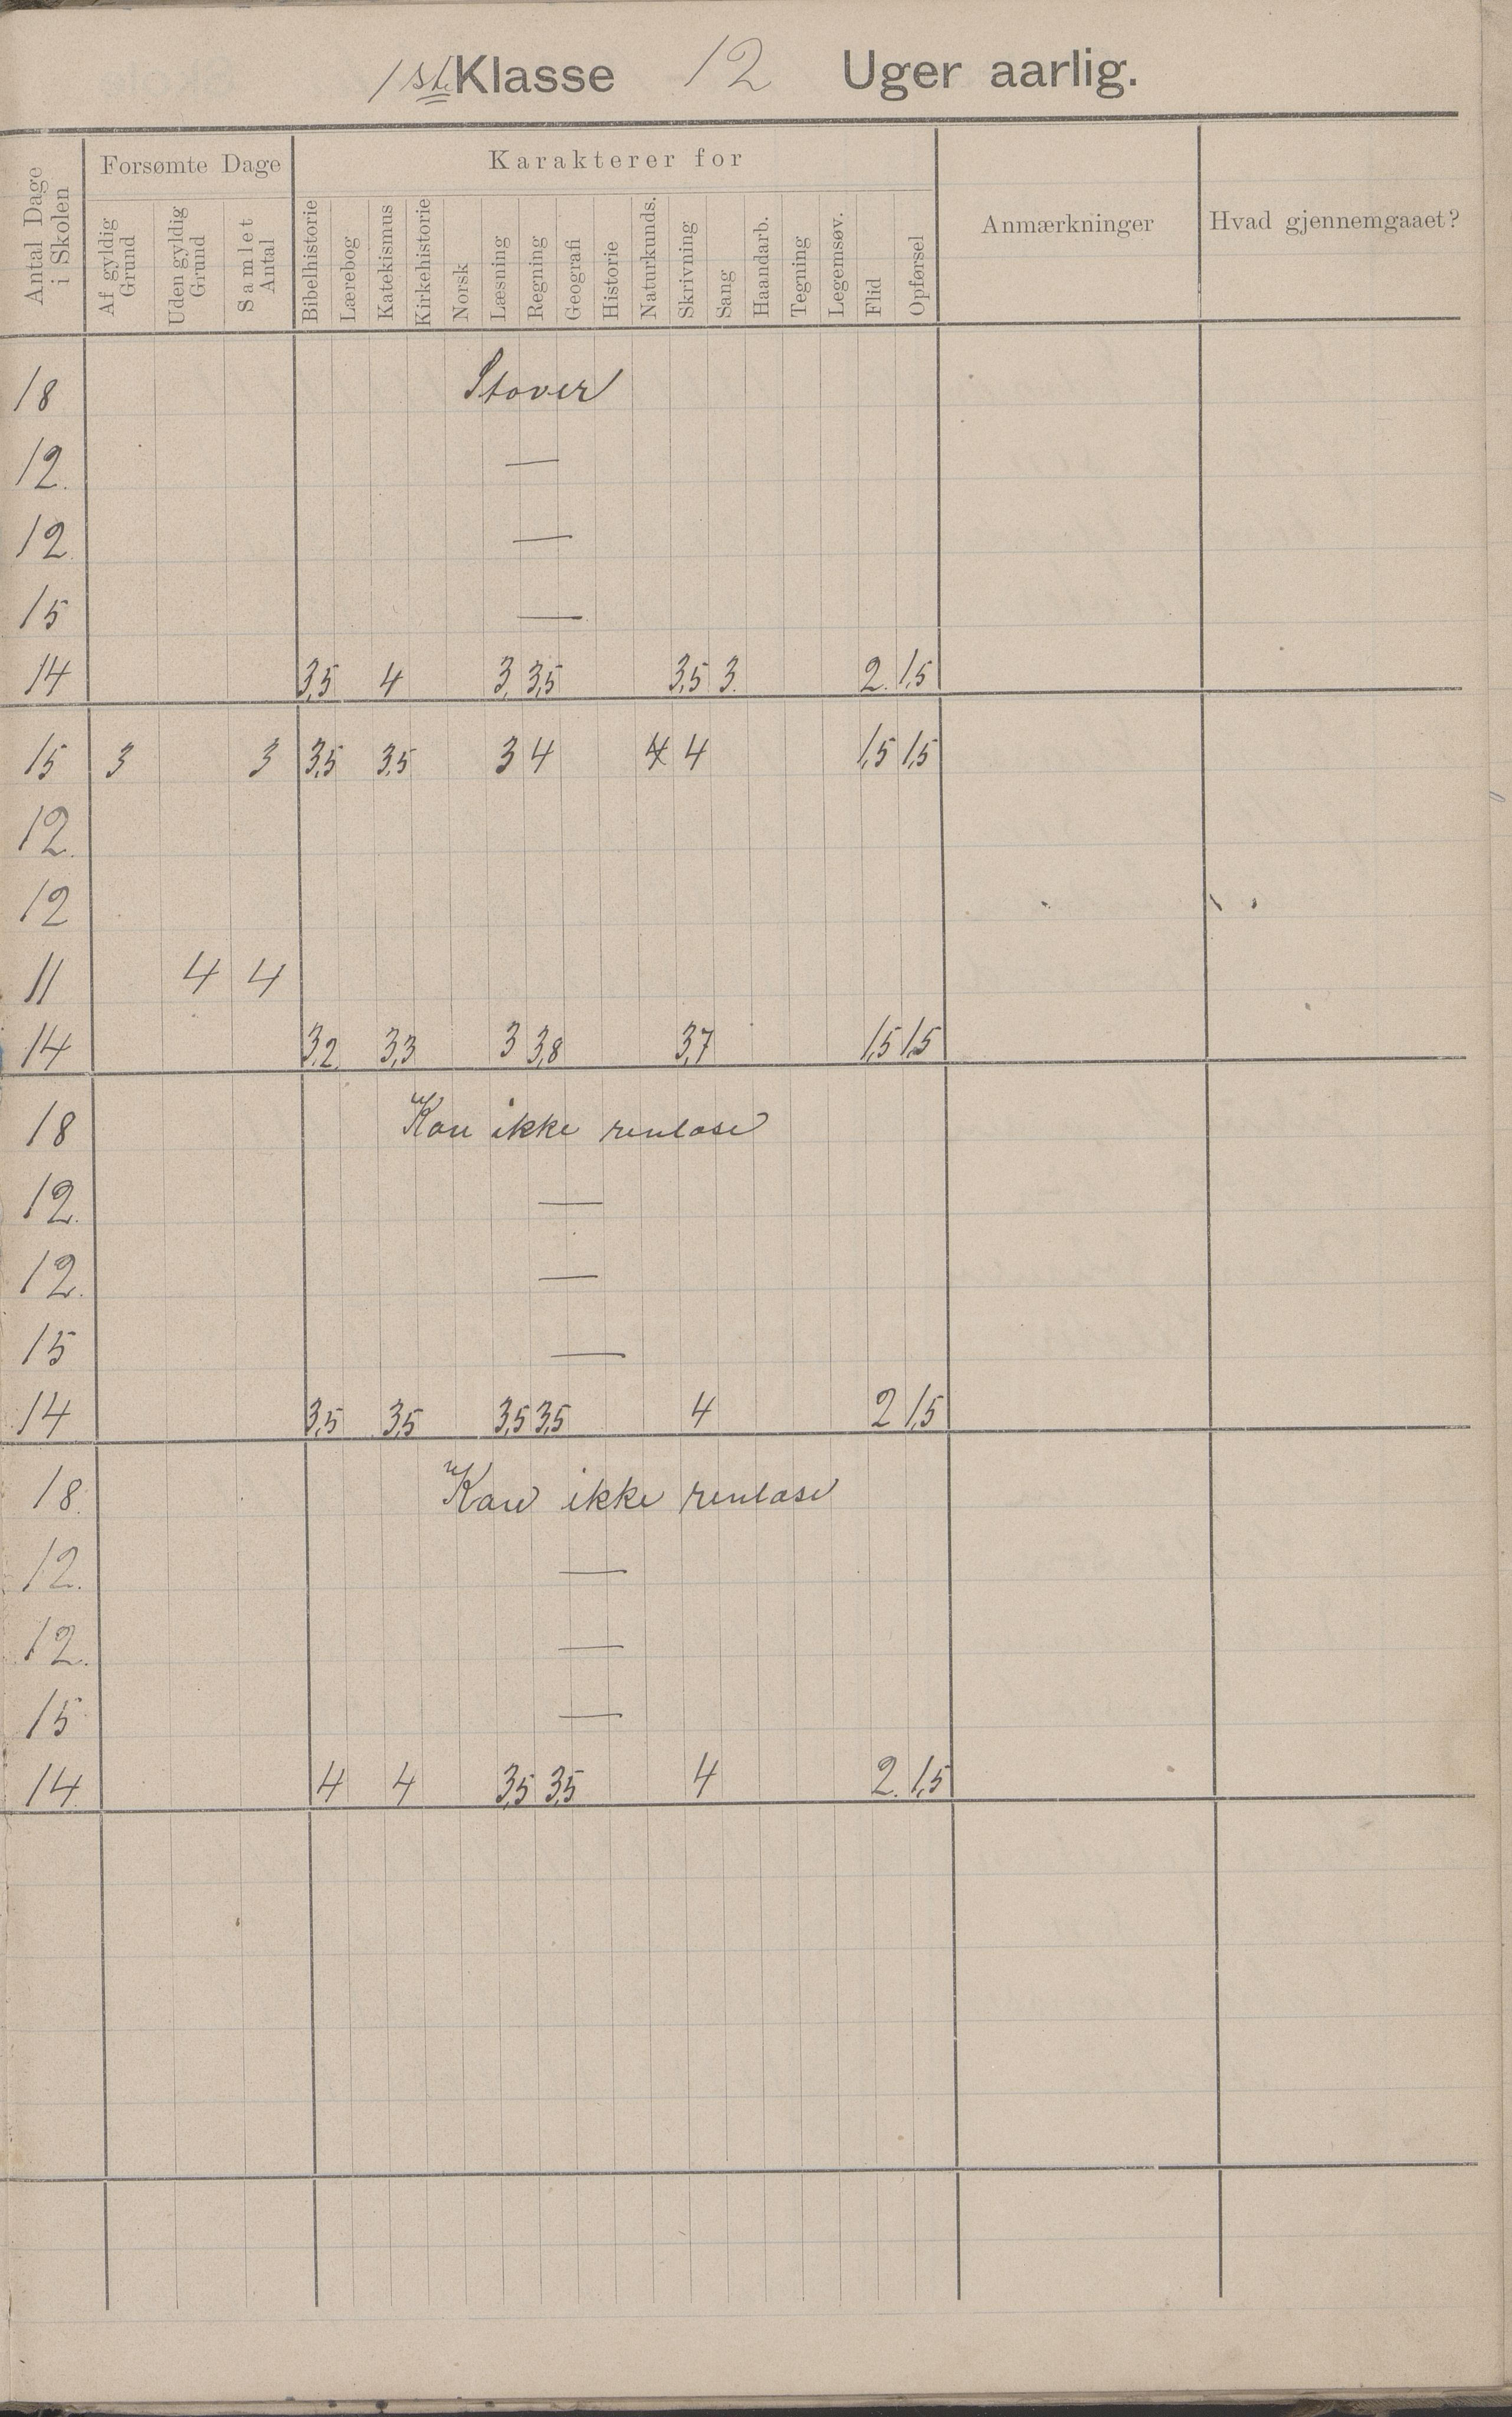 1ste Klasse 12 Uger aarlig.
Antal Dage i Skolen
Forsømte Dage
Karakterer for
Anmærkninger
Hvad gjennemgaaet?
Af gyldig Grund
Uden gyldig Grund
Samlet Antal
Bibelhistorie
Lærebog
Katekismus
Kirkehistorie
Norsk
Læsning
Regning
Geografi
Historie
Naturkunds.
Skrivning
Sang
Haandarb.
Tegning
Legemsøv.
Flid
Opførsel
18 Staver
12. —
12 —
15 —
14 3,5 4 3, 3,5 3,5 3. 2. 1,5
15 3 3 3,5 3,5 3 4 4 1,5 1,5
12.
12
11 4 4
14 3,2. 3,3 3 3,8 3,7 1,5 1,5
18 Kan ikke renlæse
12. —
12. —
15 —
14 3,5 3,5 3,5 3,5 4 2 1,5
18. Kan ikke renlæse
12. —
12. —
15 —
14. 4 4 3,5 3,5 4 2. 1,5